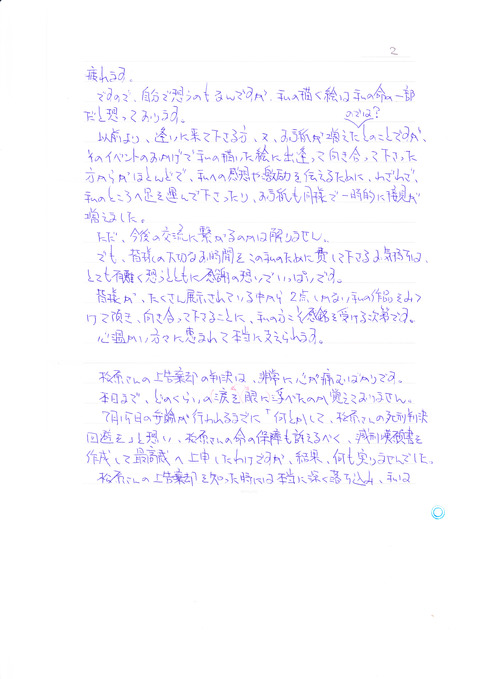 2
疲れます。
ですので、自分で想うのもなんですが、私の描く絵は私の命の一部
だと想っております。
のでは?
以前より、逢いに来て下さる方、又、お手紙が増えたとのことですが、
そのイベントのおかげで私の描いた絵に出逢って向き合って下さった
方からがほとんどで、私への感想や激励を伝えるために、わざわざ、
私のところへ足を運んで下さったり、お手紙も同様で一時的に接見が
増えました。
ただ、今後の交流に繋がるのかは解りません。
でも、皆様の大切なお時間をこの私のために費して下さるお気持は、
とても有難く想うとともに感謝の想いでいっぱいです。
皆様が、たくさん展示されている中から2点しかない私の作品をみつ
けて頂き、向き合って下さることに、私の方こそ感銘を受ける次第です。
心温かい方々に恵まれて本当に支えられます。
松原さんの上告棄却の判決は、非常に心が痛むばかりです。
本日まで、どのくらいの涙を眼に浮べたのか覚えておりません。
7月15日の弁論が行われるまでに「何とかして、松原さんの死刑判決
回避を」と想い、松原さんの命の保障も訴えるべく、減刑嘆願書を
作成して最高裁へ上申したわけですが、結果、何も実りませんでした。
松原さんの上告棄却を知った時には本当に深く落ち込み、私は